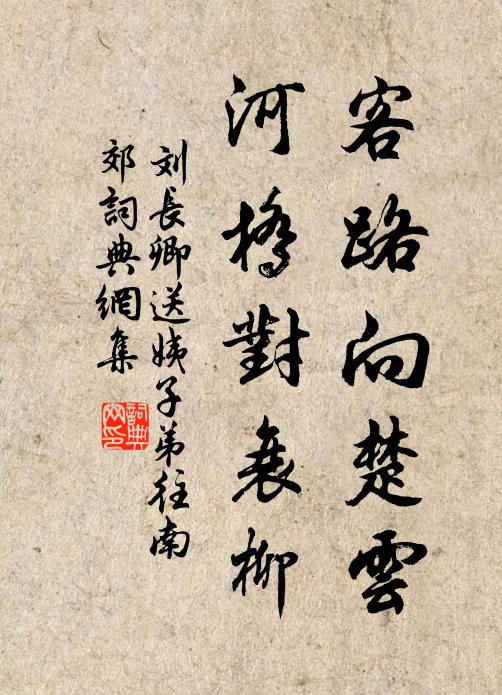 客路向楚雲
河橋對衰柳
刘長卿送姨子弟往南
郊詞典網集
詞典
网印